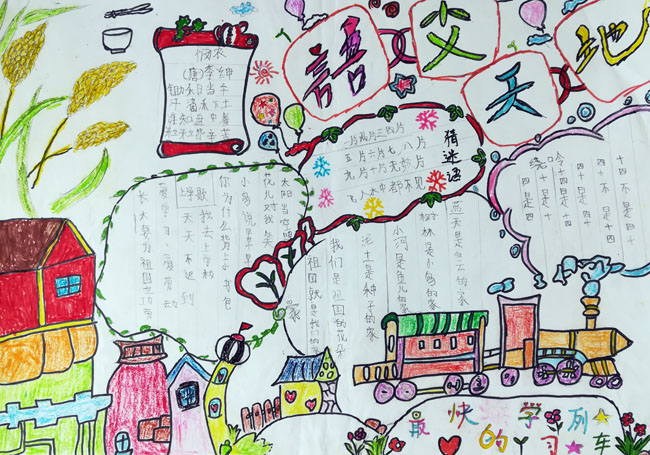 語文天地
悯农
(唐)李绅
锄禾日当午
汗滴禾下土
谁知盘中餐
粒粒皆辛苦
猜谜语
一片两片三四片
五片六片七八片
九片十片无数片
飞入水中都不见
绕口令
四是四
十是十
十四是十四
四十是四十
上学歌
太阳当空照
花儿对我笑
小鸟说早早早
你为什么背上小书包
我去上学校
天天不迟到
爱学习爱劳动
长大要为祖国立功劳
家
蓝天是白云的家
树林是小鸟的家
小河是鱼儿的家
泥土是种子的家
我们是祖国的花朵
祖国就是我们的家
最快的学习列车